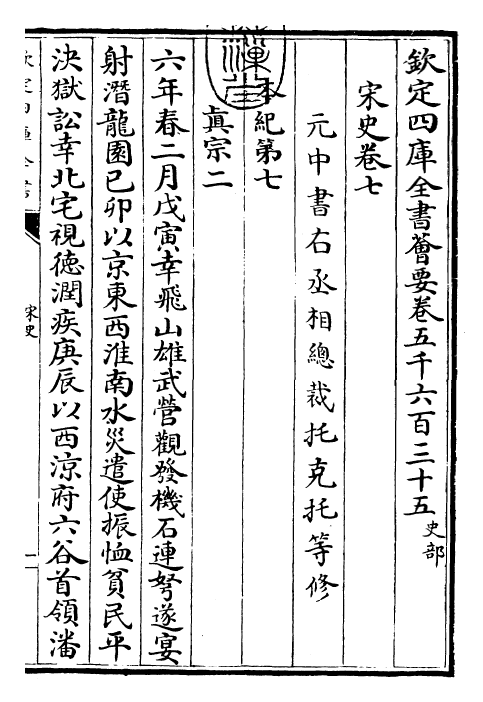 欽定四庫全書薈要卷五千六百三十五史部
宋史卷七
元中書右丞相總裁托克托等修
本紀第七
真宗二
六年春二月戊寅幸飛山雄武營觀發機石連弩遂宴
射潛龍園已卯以京東西淮南水災遣使振恤貧民平
決獄訟幸北宅視徳潤疾庚辰以西涼府六谷首領潘
宋史